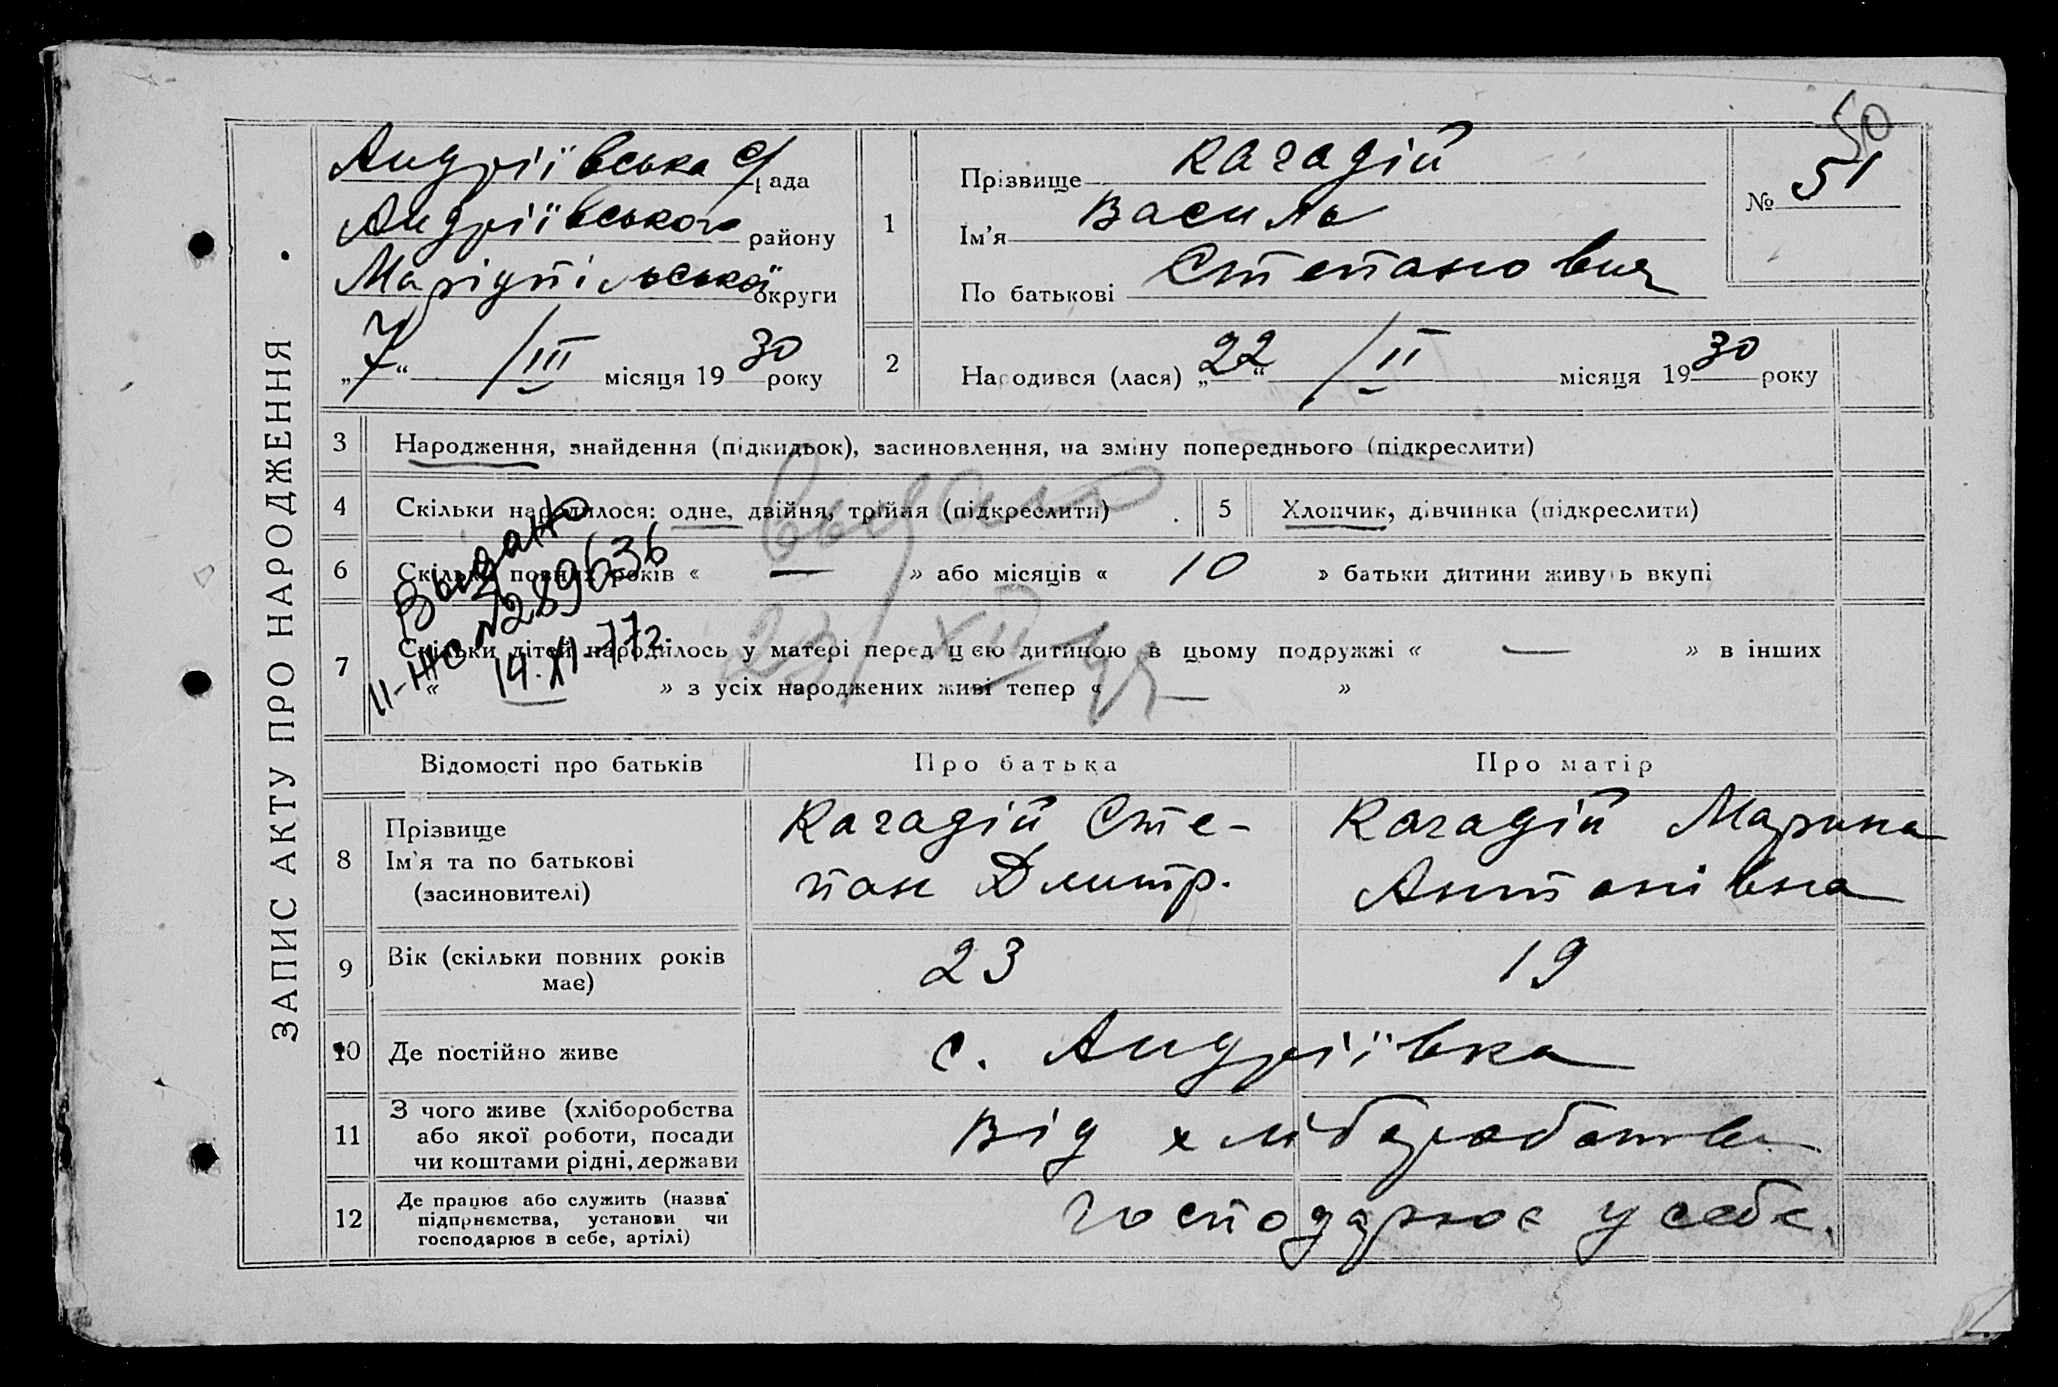 50
ЗАПИС АКТУ ПРО НАРОДЖЕННЯ
Андріївська с/рада
Андріївського району
Маріупільської округи
„7“ /III місяця 1930 року
1
Прізвище Кагадій
Ім'я Василь
По батькові Степанович
№ 51
2
Народився (лася) „22“ /II місяця 1930 року
3 Народження, знайдення (підкидьок), засиновлення, на зміну попереднього (підкреслити)
4 Скільки народилося: одне, двійня, трійня (підкреслити)
5 Хлопчик, дівчинка (підкреслити)
6 Скільки повних років « — » або місяців « 10 » батьки дитини живуть вкупі
7 Скільки дітей народилось у матері перед цією дитиною в цьому подружжі « — » в інших
« » з усіх народжених живі тепер « — »
Выдано
II-ЖС №289636
14.XI-772
выдано
23/XII
Відомості про батьків
Про батька
Про матір
8 Прізвище
Ім'я та по батькові
(засиновителі)
Кагадій Сте-
пан Дмитр.
Кагадій Марина
Антонівна
9 Вік (скільки повних років
має)
23
19
10 Де постійно живе
с. Андріївка
11 З чого живе (хліборобства
або якої роботи, посади
чи коштами рідні, держави
Від хліборобства
12 Де працює або служить (назва
підприємства, установи чи
господарює в себе, артілі)
Господарює у себе.